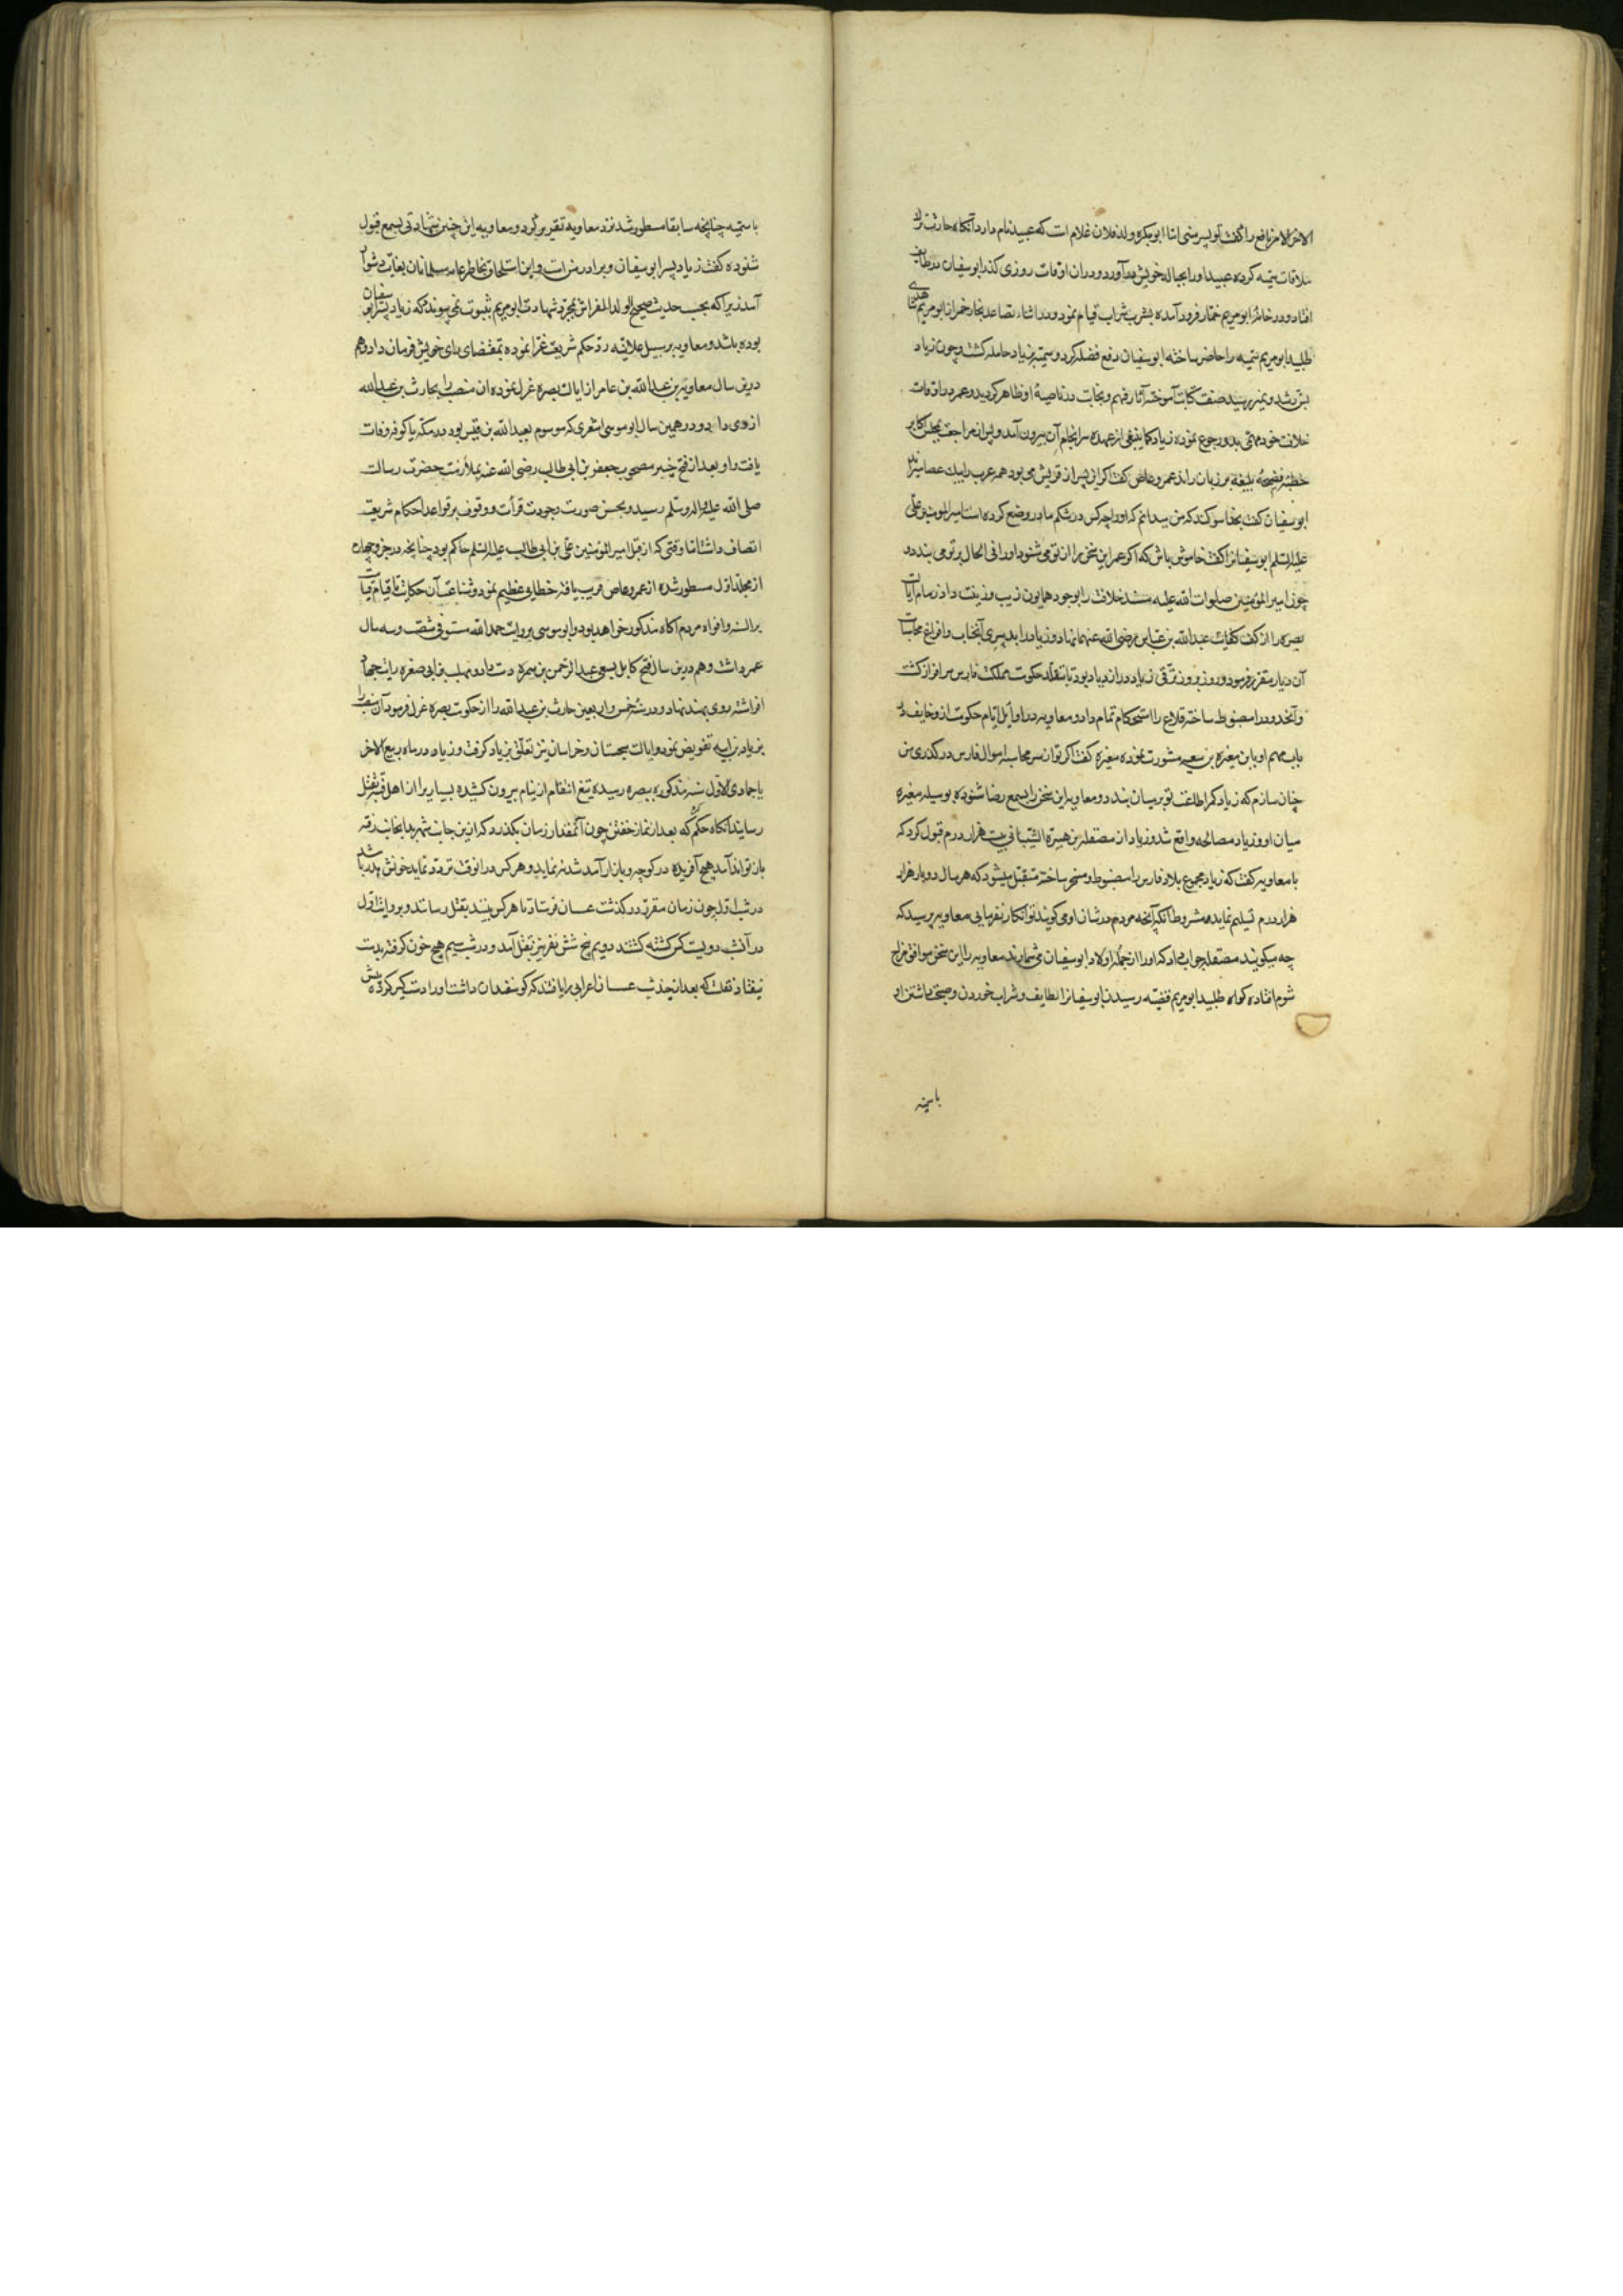 الاخر الامر نافع را گفت تو پسر منی اما ابو بکره ولد فلان غلام است که عبید نام دارد آنکاه حارث ترک
ملاقات سمیه کرده عبید او را بحباله خویش درآورد و در ان اوقات روزی کذر ابوسفیان در طایف
افتاد و در خانهٔ ابو مریم خمار فرود آمده بشرب شراب قیام نمود و در اثناء تصاعد بخار خمر از ابو مریم
طلبید ابو مریم سمیه را حاضر ساخته ابوسفیان رفع فضله کرد و سمیه بزیاد حامله کشت و چون زیاد
بسن رشد و تمیز رسید صنعت کتابت آموخته آثار فهم و نجابت در ناصیهٔ او ظاهر کردید و عمر در اوقات
خلافت خود مهمی بدو رجوع نموده زیاد کما ینبغی از عهده سرانجام آن بیرون آمد و پس از مراجعت بمجلس اکابر
خطبهٔ فصیحهٔ بلیغه بر زبان راند عمرو عاص کفت اکر این پسر از قریش می بود همه عرب را بیک عصا میراند
ابوسفیان کفت بخدا سوکند که من میدانم که او را چه کس در شکم مادر وضع کرده است امیر المومنین علی
علیه السلم ابوسفیان را کفت خاموش باش که اکر عمر این سخن را از تو می شنود او را فی الحال بر تو می بندد و
چون امیر المؤمنین صلوات الله علیه مسند خلافت را بوجود همایون زیب و زینت داد زمام ایالت
بصره را از کف کفایت عبد الله بن عباس رضی الله عنهما نهاد و زیاد را بدبیری آنجناب و افراغ محاسبات
آن دیار مقرر فرمود و روز بروز ترقی زیاد در ازدیاد بود تا بتقلد حکومت مملکت فارس سرافراز کشت
و آنحدود را مضبوط ساخته قلاع را استحکام تمام داد و معاویه در اوایل ایام حکومت از و خایف
باب مهم او با بن مغیره بن شعبه مشورت نموده مغیره کفت اکر توان سر محاسبه اموال فارس در کذری من
چنان سازم که زیاد کمر اطاعت تو بر میان بندد و معاویه این سخن را بسمع رضا شنوده بوسیله مغیره
میان او و زیاد مصالحه واقع شد و زیاد از مصقله بن هبیرة الشیبانی بیست هزار درم قبول کرد که
با معاویه کفت که زیاد مجموع بلاد فارس را مضبوط و مسخر ساخته متقبل میشود که هر سال دوبار هزار
هزار درم تسلیم نماید مشروط آنکه آنچه مردم در شان او می کویند تو انکار نفرمایی معاویه پرسید که
چه میکویند مصقله جواب داد که او را از جملهٔ اولاد ابوسفیان می شمارند معاویه را این سخن موافق مزاج
شوم افتاده کواه طلبید ابو مریم قضیّه رسیدن ابوسفیانرا بطایف و شراب خوردن و صحبت داشتن او
با سمیه
با سمیه چنانچه سابقا مسطور شد نزد معاویه تقریر کرد و معاویه این چنین شهادتی بسمع قبول
شنوده کفت زیاد پسر ابوسفیان و برادر منست و این استلحاق بخاطر عامه مسلمانان بغایت دشوار
آمد زیرا که بحسب حدیث صحیح الولد للفراش بمجرد شهادت ابو مریم بثبوت نمی پیوندد که زیاد پسر ابو سفیان
بوده باشد و معاویه بر سبیل علانیه ردّ حکم شریعت غرا نموده بمقتضای رای خویش فرمان داد و هم
درین سال معاویه بن عبد الله بن عامر از ایالت بصره عزل نموده ان منصب را بحارث بن عبد الله
ازدی داد و در همین سال ابو موسی اشعری که موسوم بعبد الله بن قیس بود در مکه یا کوفه وفات
یافت و او بعد از فتح خیبر مصحوب جعفر بن ابی طالب رضی الله عنه بملازمت حضرت رسالت
صلی الله علیه واله وسلم رسید و بحسن صورت و جودت قرأت و وقوف بر قواعد احکام شریعت
اتصاف داشت اما وقتی که از قبل امیر المؤمنین علی بن ابی طالب علیه السلم حاکم بود چنانچه در جزو چهارم
از مجلد اول مسطور شده از عمرو عاص فریب یافته خطایی عظیم نمود و شناعت آن حکایت تا قیام قیامت
بر السنه و افواه مردم آکاه مذکور خواهد بود و ابو موسی بروایت حمد الله مستوفی شصت و سه سال
عمر داشت و هم درین سال فتح کابل بسعی عبد الرحمن بن سمره دست داد و مهلب بن ابی صفره رایت جهاد
افراشته روی بهند نهاد و در سنه خمس و اربعین حارث بن عبد الله را از حکومت بصره عزل فرمود آن منصب را
بزیاد بن ابیه تفویض نمود و ایالت سجستان و خراسان نیز تعلق بزیاد کرفت و زیاد در ماه ربیع الاخر
یا جمادی الاول سنه مذکوره ببصره رسیده تیغ انتقام از نیام بیرون کشیده بسیاری را از اهل فتنه بقتل
رسانید آنکاه حکم کرد که بعد از نماز خفتن چون آنمقدار زمان بکذرد که ازین جانب شهر بدانجانب رفته
باز تواند آمد هیچ آفریده در کوچه و بازار آمد شد ننماید و هر کس در انوقت تردد نماید خونش هدر باشد
در شب اول چون زمان مقرر در کذشت عسسان فرستاد تا هر کس بینند بقتل رسانند و بروایت اول
در آنشب دویست کس کشته کشتند دویم پنج شش نفر نیز بقتل آمد و در شب سیم هیچ خون کرفته بدست
نیفتاد نقلست که بعد از چند شب عسسان اعرابی را یافتند که کوسفندان داشت او را دست کیر کرده پیش